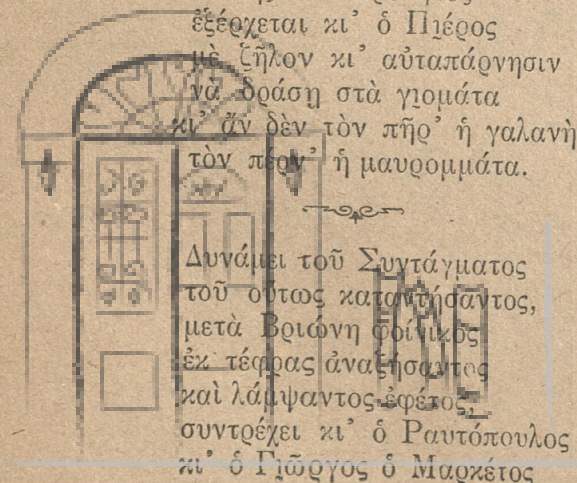 ἐξέρχεται κι' ὁ Πιέρος
μὲ ζῆλον κι' αὐταπάρνησιν
νὰ δράσῃ στὰ γιομάτα
κι' ἂν δὲν τὸν πῆρ' ἡ γαλανὴ
τὸν περν' ἡ μαυρομμάτα.
Δυνάμει τοῦ Συντάγματος
τοῦ οὕτως καταντήσαντος,
μετὰ Βριώνη φοίνικος
ἐκ τέφρας ἀναζήσαντος
καὶ λάμψαντος ἐφέτος,
συντρέχει κι' ὁ Ραυτόπουλος
κι' ὁ Γιῶργος ὁ Μαρκέτος